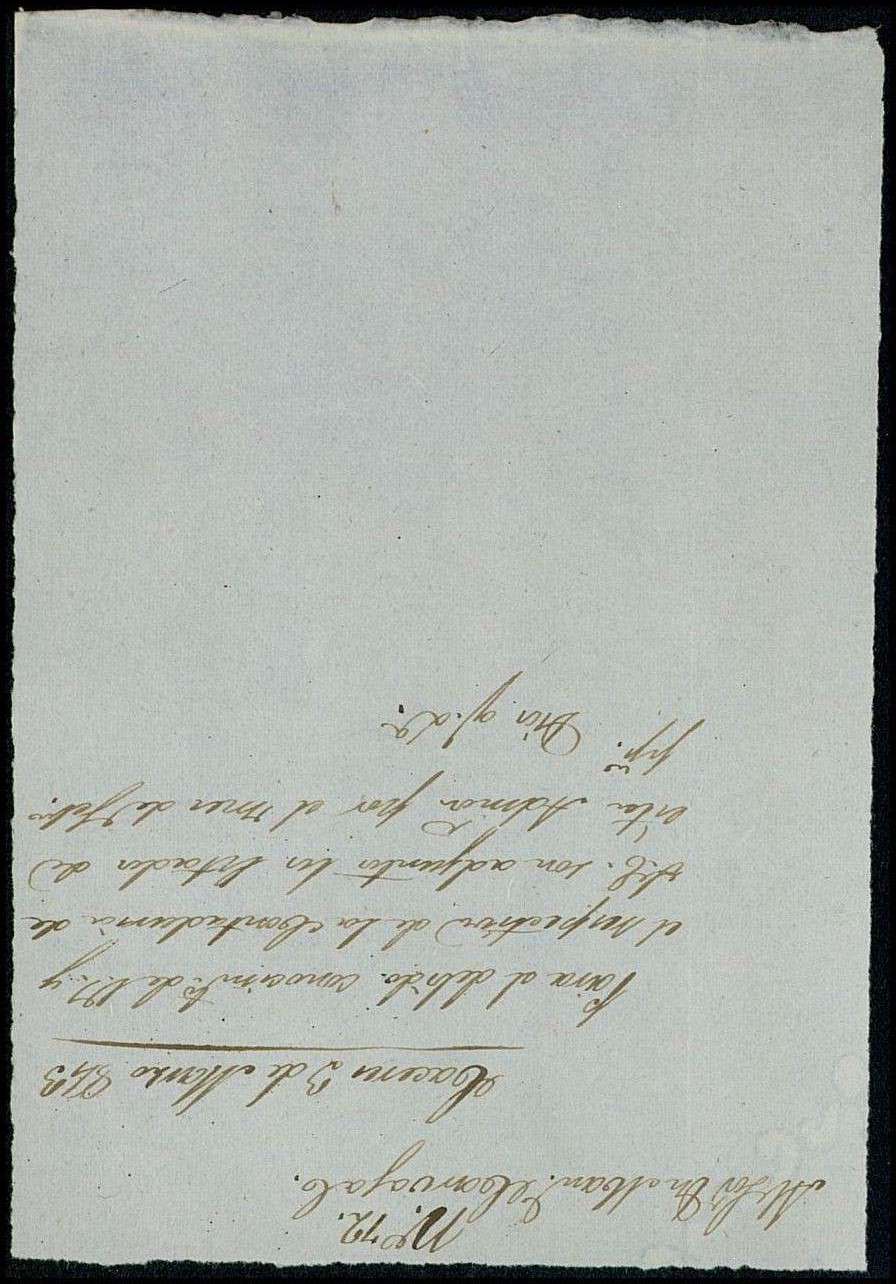 Nº. 72.
Al Sor Dn Man.l Carvajal.
Cáceres 3 de Marzo 843
Para el debido conocimto. de V. y
el respectivo de la Contaduria de
son adjuntos los Estados de
esta Admon por el mes de Febo.
pp.º
Dios gde. a